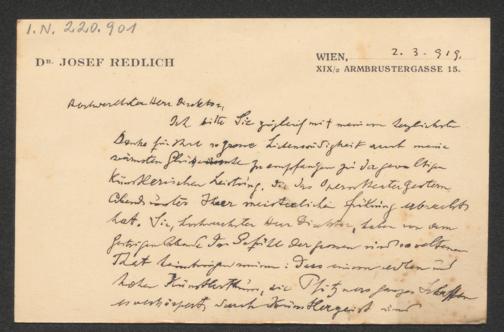 I.N. 220.901
DR. JOSEF REDLICH
WIEN, 2. 3. 919.
XIX/2 ARMBRUSTERGASSE 15.
Hochverehrter Herr Direktor,
Ich bitte Sie zugleich mit meinem herzlichsten
Danke für Ihre so grosse Liebenswürdigkeit auch meine
wärmsten Glückwünsche zu empfangen zu der gewaltigen
künstlerischen Leistung, die das Opernthater gestern
Abend unter Ihrer meisterlichen Führung vollbracht
hat. Sie, hochverehrter Herr Direktor, haben
gestrigen Abende das Gefühl der und seltenen
That : dass einem edlen und
hohen Künstlerthum, wie Pfitzners ganzes Schaffen
es verkörpert, durch Künstlergeist und